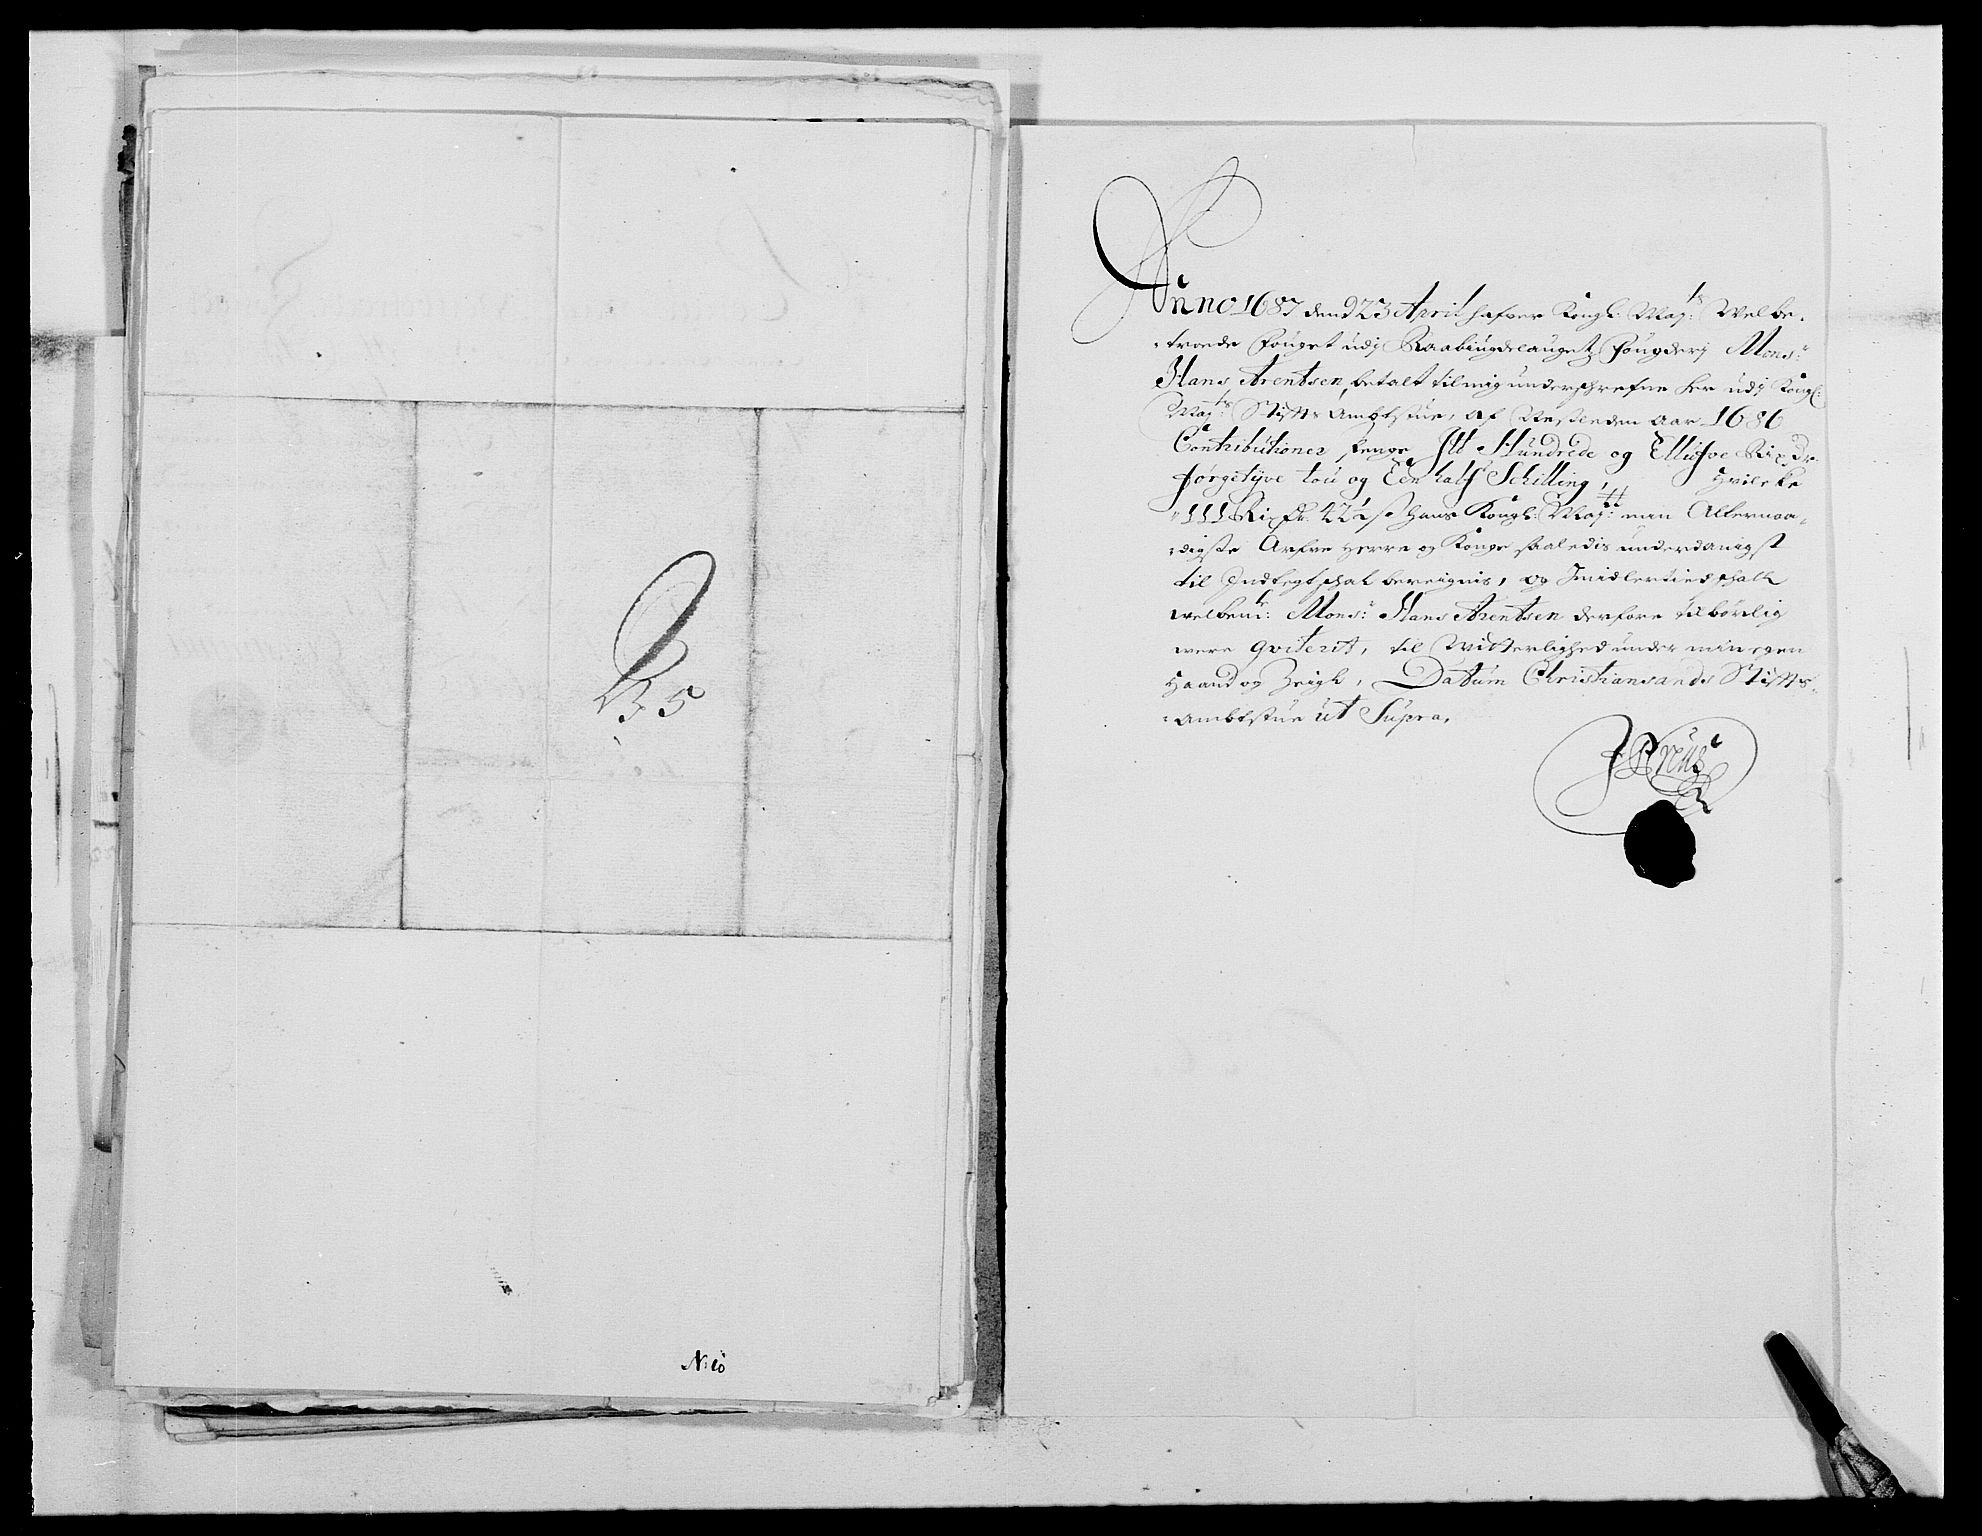 B 5
N: 10
Anno 1687 dend 23 April hafver Kongl: Maj:ts Velbe,
troede Fouget udj Raabiugdelauget Fougderj Mons:r
Hans Arentsen, betalt til mig underschrefne her udj Kongl:
Maj:ts Stifts Ambtstue, af Nestleden Aar 1686
Contributioner, penge Itt Hundrede og Elliefve Rixdr.
förgetyve tou og Een half Schilling, Hvilcke
111 Rixdr. 42½ s hans Kongl: Maj:tt min Allernaa,
digste Arfve Herre og Konge saaledis underdanigst
til Indtegt schal bereignis, og Imidlertied schall
velbem:te Mons:r Hans Arentsen derfore tilbörlig
were qviterit, til Witterlighed under min egen
Haand og Zeigl, Datum Christiansands Stifts,
Ambtstue ut Supra.
J Preus